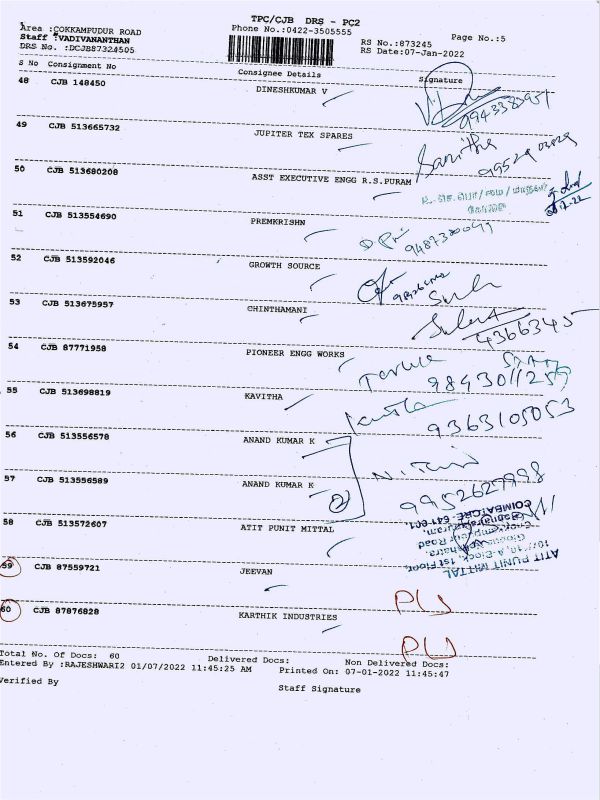 TPC/CJB DRS - PC2
Area :COKKAMPUDUR ROAD Phone No.:0422-3505555 Page No.:5
Staff :VADIVANANTHAN RS No.:873245
DRS No. :DCJB87324505 RS Date:07-Jan-2022
S No Consignment No Consignee Details Signature
48 CJB 148450 DINESHKUMAR V
49 CJB 513665732 JUPITER TEX SPARES
Sanitha
50 CJB 513680208 ASST EXECUTIVE ENGG R.S.PURAM
51 CJB 513554690 PREMKRISHN
52 CJB 513592046 GROWTH SOURCE
53 CJB 513675957 CHINTHAMANI
4366345
54 CJB 87771958 PIONEER ENGG WORKS
9843011259
55 CJB 513698819 KAVITHA
Kavitha
9363105053
56 CJB 513556578 ANAND KUMAR K
57 CJB 513556589 ANAND KUMAR K
2
9952627998
58 CJB 513572607 ATIT PUNIT MITTAL
ATIT PUNIT MITTAL
COIMBATORE- 641 001.
59 CJB 87559721 JEEVAN
60 CJB 87876828 KARTHIK INDUSTRIES
Total No. Of Docs: 60 Delivered Docs: Non Delivered Docs:
Entered By :RAJESHWARI2 01/07/2022 11:45:25 AM Printed On: 07-01-2022 11:45:47
Verified By Staff Signature